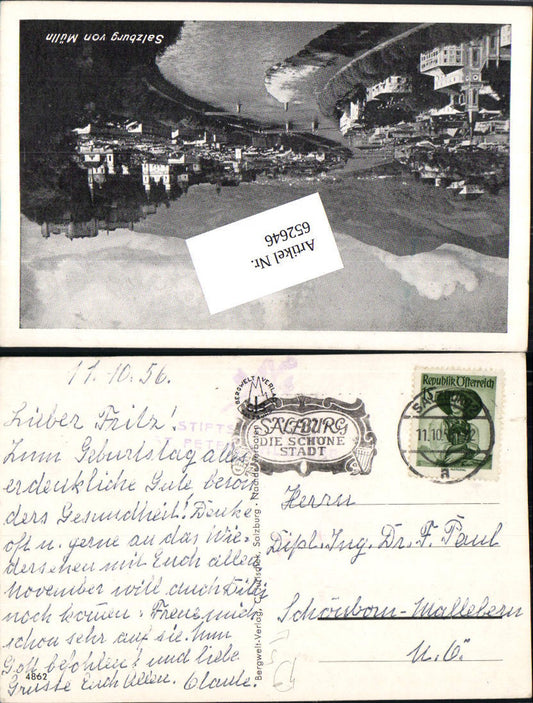 Salzburg von Mülln
Artikel Nr.
652646
11.10.56.
Lieber Fritz!
Zum Geburtstag alles
erdenkliche Gute beson
ders Gesundheit! Denke
oft u. gerne an das Wie-
dersehen mit Euch allen.
November will auch
noch komen. Freue mich
schon sehr auf sie. Nun
Gott befohlen! und liebe
Grüsse Euch Allen.
4862
STIFTS
PETER
BERGWELT VERLAG
SALZBURG
DIE SCHÖNE
STADT
Republik Österreich
11.10.
a
Bergwelt-Verlag, C. Jurischek, Salzburg - Nachdruck verboten
Herrn
Dipl. Ing. Dr. F. Paul
Schönborn-Mallebern
N.Ö.